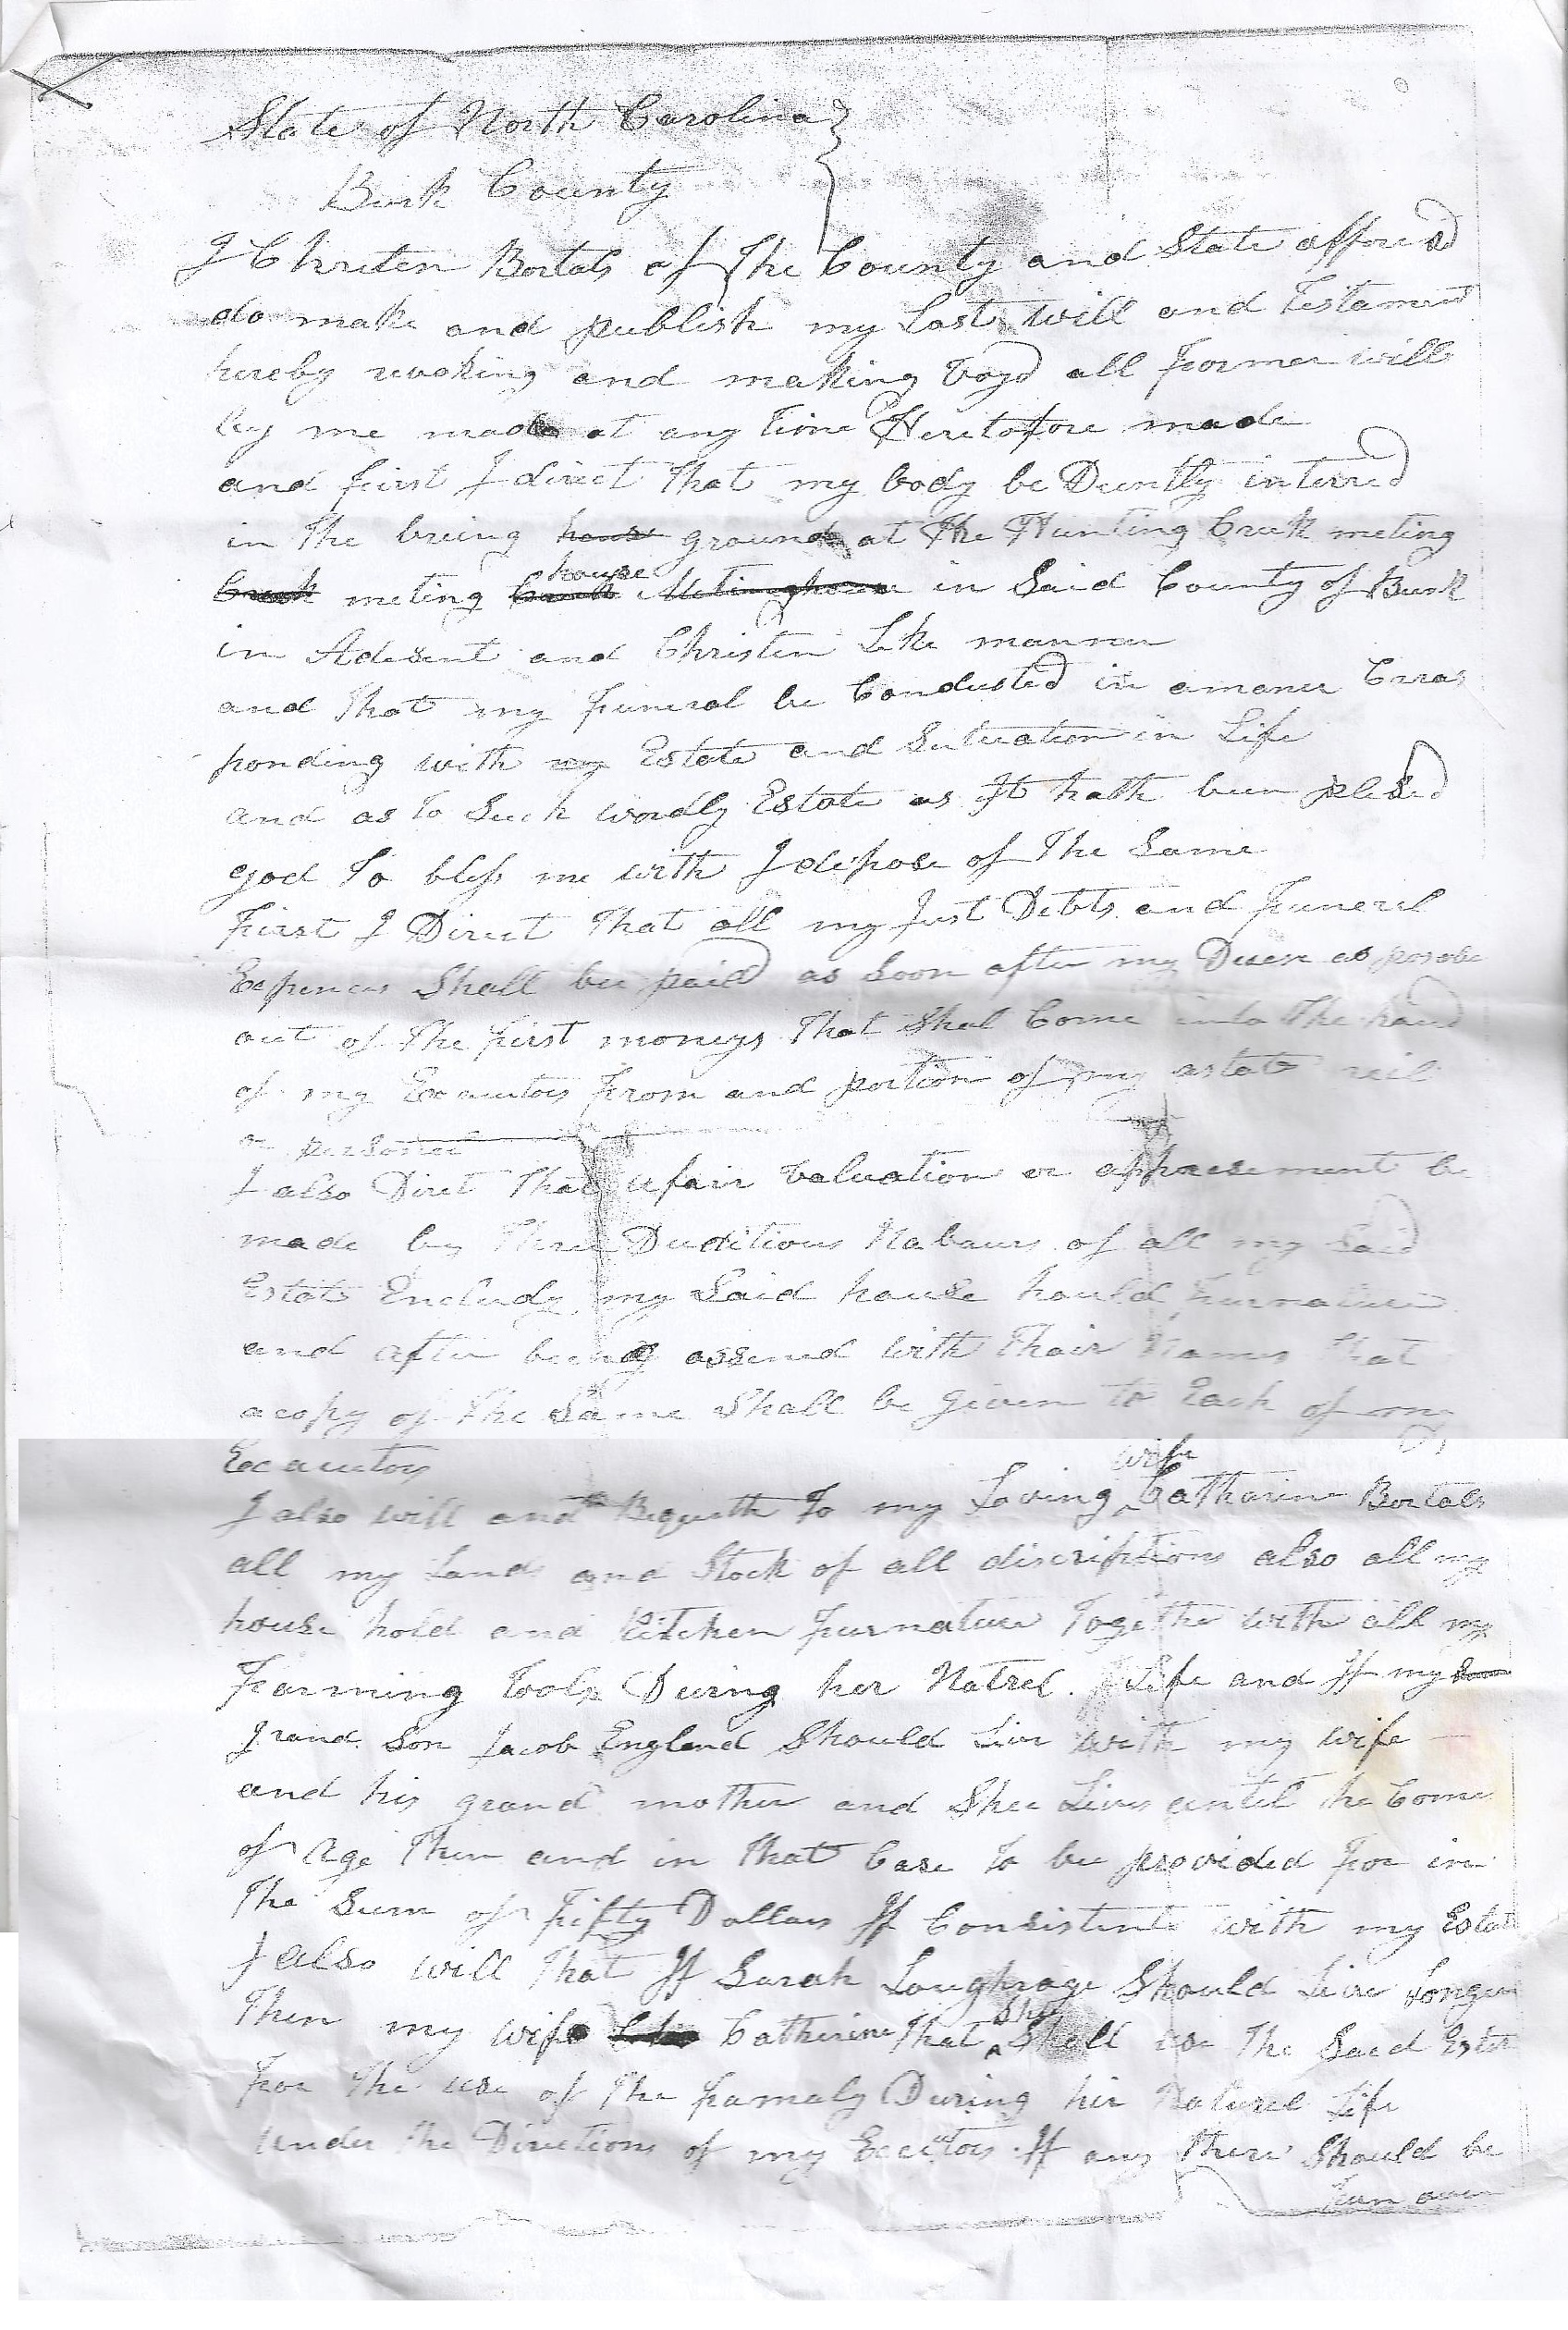 State of North Carolina
Burk County
I Christen Bortals of The County and State afforsd
do make and publish my Last will and Testament
hereby revoking and making Voyd all former will
by me made at any time Heretofore made
and first I direct That my body be Decntly interred
in The bruing house ground at The Hunting Creek meting
Creek meting Creek house Metinghouse in Said County of Burk
in Adesent and Christen Like manner
and That my funeral be Conducted in amaner Corras
ponding with my Estate and Sutuation in Life
and as To Such wordly Estate as It hath been plesed
god To bless me with I dispose of The Same
First I Direct That all my Just Debts and funerel
Expences Shall bee paid as Soon after my Decese as posobe
out of The first moneys That Shal Come into The hand
of my Excautors from and portion of my astate reil
or personel
I also Diret That afair valuation or appraesement be
made by Three Duditious Nabaurs of all my Said
Estate Encludg my Said house hould furnature
and after being assined with Thair Names That
acopy of The Same Shall be given to Each of my
Excautors
I also will and Bequeth To my Loving wife Catharine Bortals
all my Lands and Stock of all discriptions also all my
house hold and Kitchen furnature Togethe with all my
Farming Tools During her Natrel Life and If my Son
grand Son Jacob England Should Live with my wife
and his grand mother and Shee Lives until he Come
of Age Then and in That Case To bee provided for in
The Sum of Fifty Dollars If Consistent with my Estate
I also will That If Sarah Loughrage Should Live Longer
Then my wife Catherine That She Shall use The Said Estet
For The use of The famaly During hir Naturel Life
under The Directions of my Excutors If any There Should be
Turn over